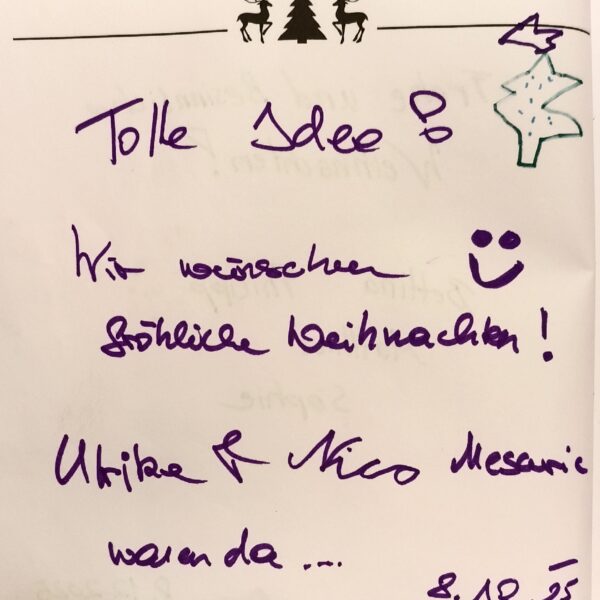 Tolle Idee!
Wir wünschen
fröhliche Weihnachten!
Ulrike & Nico Mesaric
waren da ...